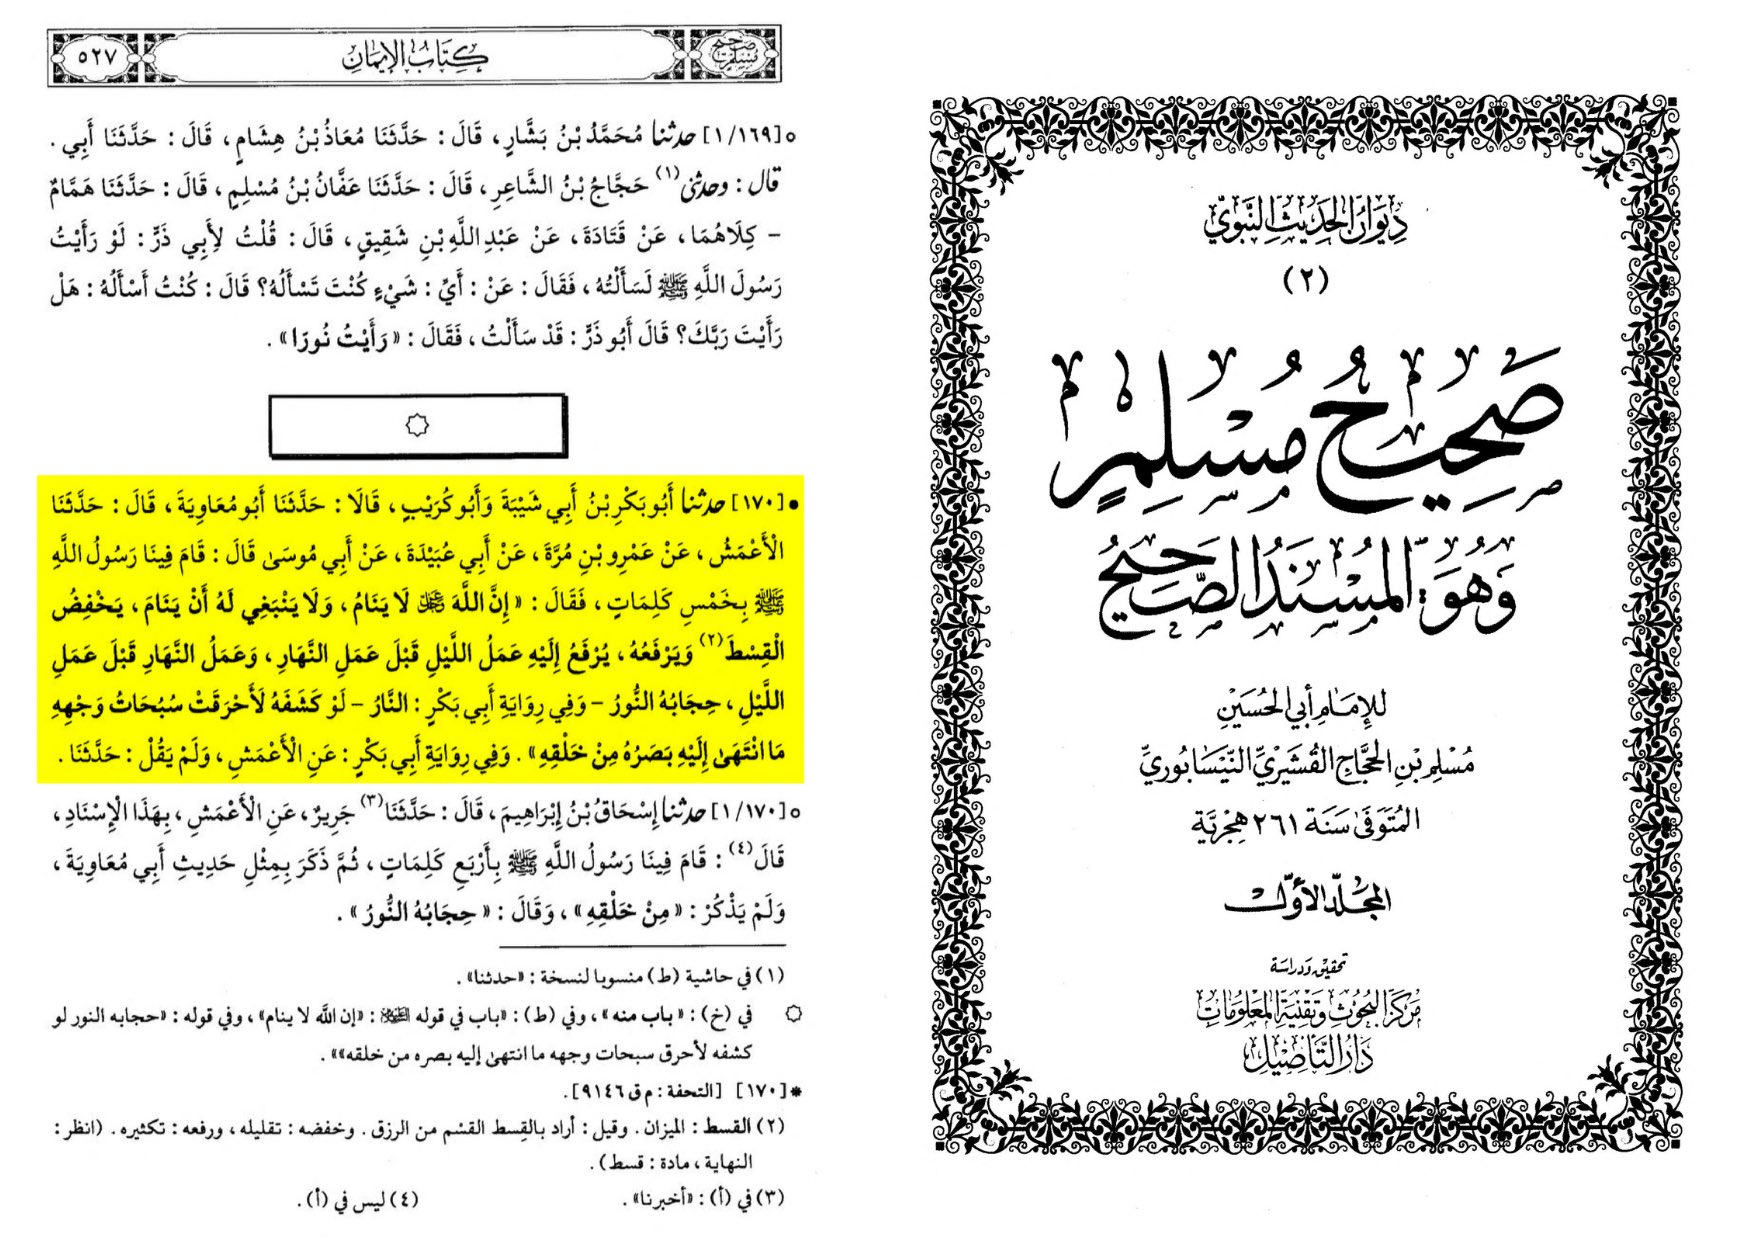 ديوان الحديث النبوي
(٢)
صَحِيحُ مُسْلِمٍ
وَهُوَ: المُسْنَدُ الصَّحِيحُ
للإمام أبي الحُسَيْنِ
مُسْلِمِ بْنِ الحَجَّاجِ القُشَيْرِيِّ النَّيْسَابُورِيِّ
المُتَوَفَّى سَنَة ٢٦١ هِجْرِيَّة
المجلّد الأوّل
تحقيق ودراسة
مَرْكَزُ البُحُوثِ وَتِقْنِيَةِ المَعْلُومَاتِ
دَارُ التَّأصِيلِ
صحيح مسلم
كِتَابُ الإِيمَانِ
٥٢٧
٥ [١/١٦٩] حدثنا مُحَمَّدُ بْنُ بَشَّارٍ، قَالَ: حَدَّثَنَا مُعَاذُ بْنُ هِشَامٍ، قَالَ: حَدَّثَنَا أَبِي.
قال: وحدثني(١) حَجَّاجُ بْنُ الشَّاعِرِ، قَالَ: حَدَّثَنَا عَفَّانُ بْنُ مُسْلِمٍ، قَالَ: حَدَّثَنَا هَمَّامٌ
- كِلَاهُمَا، عَنْ قَتَادَةَ، عَنْ عَبْدِ اللَّهِ بْنِ شَقِيقٍ، قَالَ: قُلْتُ لِأَبِي ذَرٍّ: لَوْ رَأَيْتُ
رَسُولَ اللَّهِ ﷺ لَسَأَلْتُهُ، فَقَالَ: عَنْ: أَيِّ: شَيْءٍ كُنْتَ تَسْأَلُهُ؟ قَالَ: كُنْتُ أَسْأَلُهُ: هَلْ
رَأَيْتَ رَبَّكَ؟ قَالَ أَبُو ذَرٍّ: قَدْ سَأَلْتُ، فَقَالَ: «رَأَيْتُ نُورًا».
• [١٧٠] حدثنا أَبُو بَكْرِ بْنُ أَبِي شَيْبَةَ وَأَبُو كُرَيْبٍ، قَالَا: حَدَّثَنَا أَبُو مُعَاوِيَةَ، قَالَ: حَدَّثَنَا
الْأَعْمَشُ، عَنْ عَمْرِو بْنِ مُرَّةَ، عَنْ أَبِي عُبَيْدَةَ، عَنْ أَبِي مُوسَى قَالَ: قَامَ فِينَا رَسُولُ اللَّهِ
ﷺ بِخَمْسِ كَلِمَاتٍ، فَقَالَ: «إِنَّ اللَّهَ ﷻ لَا يَنَامُ، وَلَا يَنْبَغِي لَهُ أَنْ يَنَامَ، يَخْفِضُ
الْقِسْطَ(٢) وَيَرْفَعُهُ، يُرْفَعُ إِلَيْهِ عَمَلُ اللَّيْلِ قَبْلَ عَمَلِ النَّهَارِ، وَعَمَلُ النَّهَارِ قَبْلَ عَمَلِ
اللَّيْلِ، حِجَابُهُ النُّورُ - وَفِي رِوَايَةِ أَبِي بَكْرٍ: النَّارُ - لَوْ كَشَفَهُ لَأَحْرَقَتْ سُبُحَاتُ وَجْهِهِ
مَا انْتَهَى إِلَيْهِ بَصَرُهُ مِنْ خَلْقِهِ». وَفِي رِوَايَةِ أَبِي بَكْرٍ: عَنِ الْأَعْمَشِ، وَلَمْ يَقُلْ: حَدَّثَنَا.
٥ [١/١٧٠] حدثنا إِسْحَاقُ بْنُ إِبْرَاهِيمَ، قَالَ: حَدَّثَنَا(٣) جَرِيرٌ، عَنِ الْأَعْمَشِ، بِهَذَا الْإِسْنَادِ،
قَالَ(٤): قَامَ فِينَا رَسُولُ اللَّهِ ﷺ بِأَرْبَعِ كَلِمَاتٍ، ثُمَّ ذَكَرَ بِمِثْلِ حَدِيثِ أَبِي مُعَاوِيَةَ،
وَلَمْ يَذْكُرْ: «مِنْ خَلْقِهِ»، وَقَالَ: «حِجَابُهُ النُّورُ».
(١) في حاشية (ط) منسوبا لنسخة: «حدثنا».
۞ في (خ): «باب منه»، وفي (ط): «باب في قوله ﷺ: «إن الله لا ينام»، وفي قوله: «حجابه النور لو
كشفه لأحرق سبحات وجهه ما انتهى إليه بصره من خلقه»».
* [١٧٠] [التحفة: م ق ٩١٤٦].
(٢) القسط: الميزان. وقيل: أراد بالقِسط القسْم من الرزق. وخفضه: تقليله، ورفعه: تكثيره. (انظر:
النهاية، مادة: قسط).
(٣) في (أ): «أخبرنا». (٤) ليس في (أ).